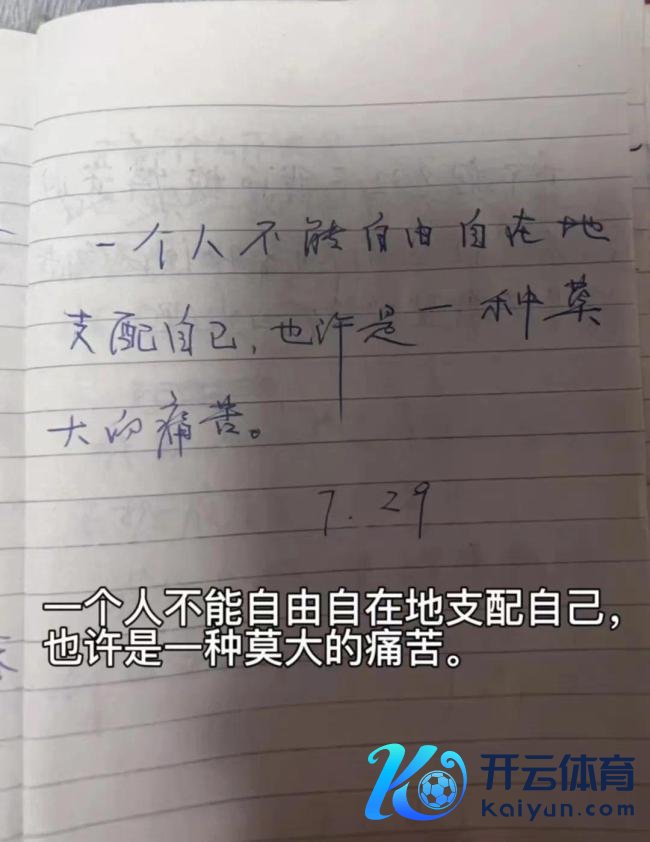 一个人不能自由自在地
支配自己，也许是一种莫
大的痛苦。
7.29
一个人不能自由自在地支配自己，
也许是一种莫大的痛苦。
开云体育
kaiyun.com